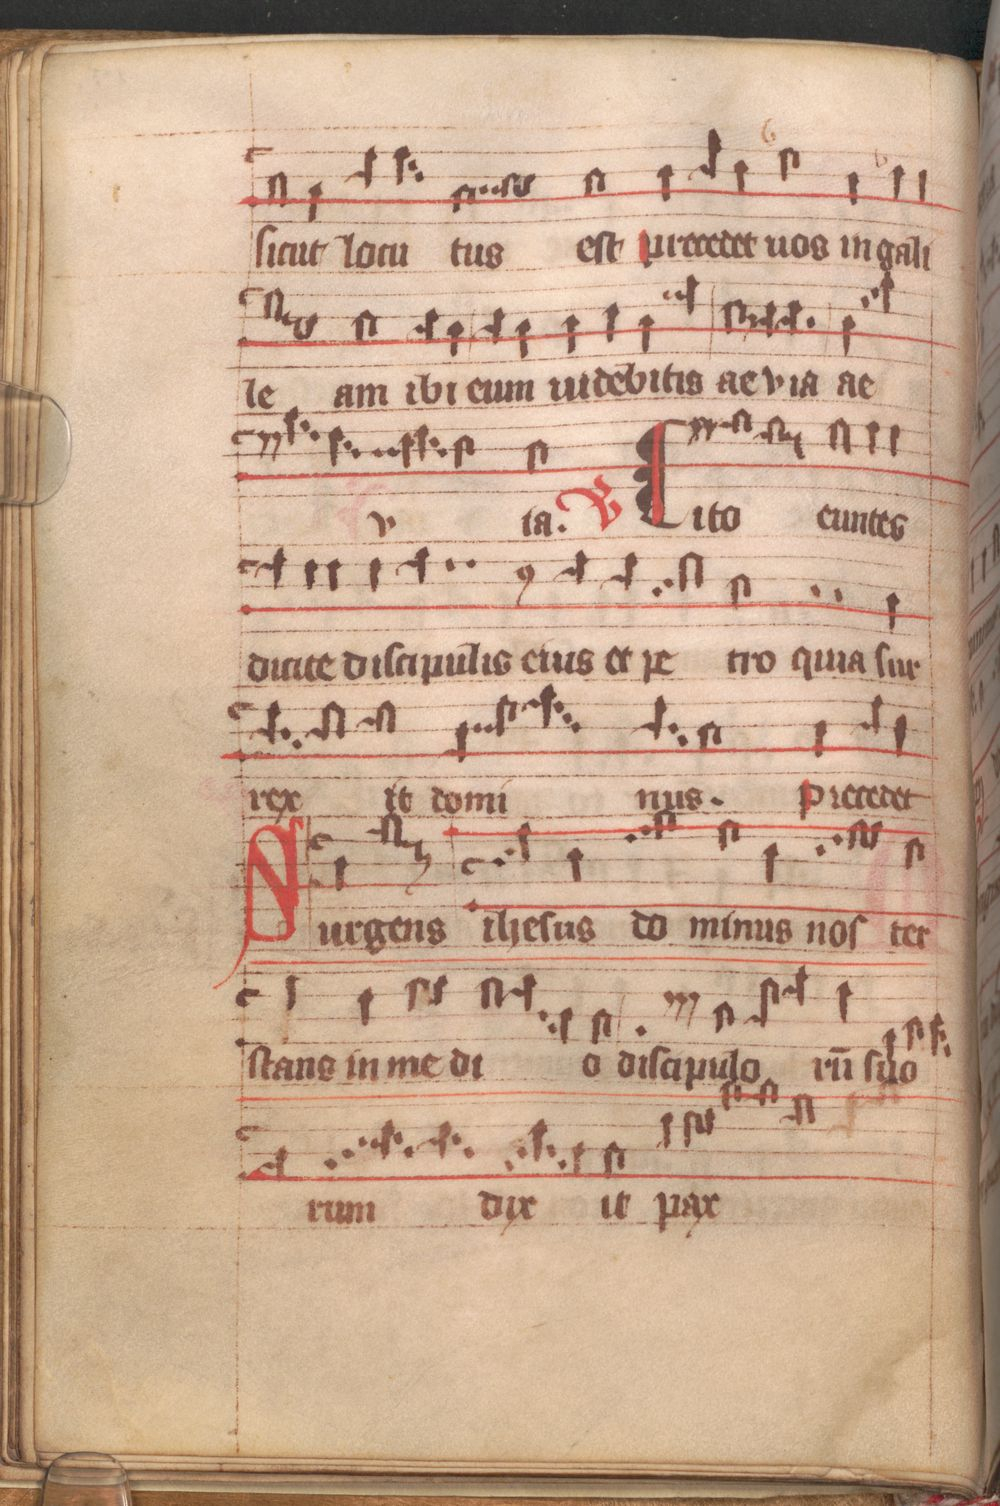 sicut locu tus est precedet uos in gali
le am ibi eum uidebitis aevia ae
v ia. V Cito euntes
dicite discipulis eius et pe tro quia sur
rex it domi nus. precedet
Surgens ihesus do minus nos ter
stans in me di o discipulo rū suo
rum dix it pax